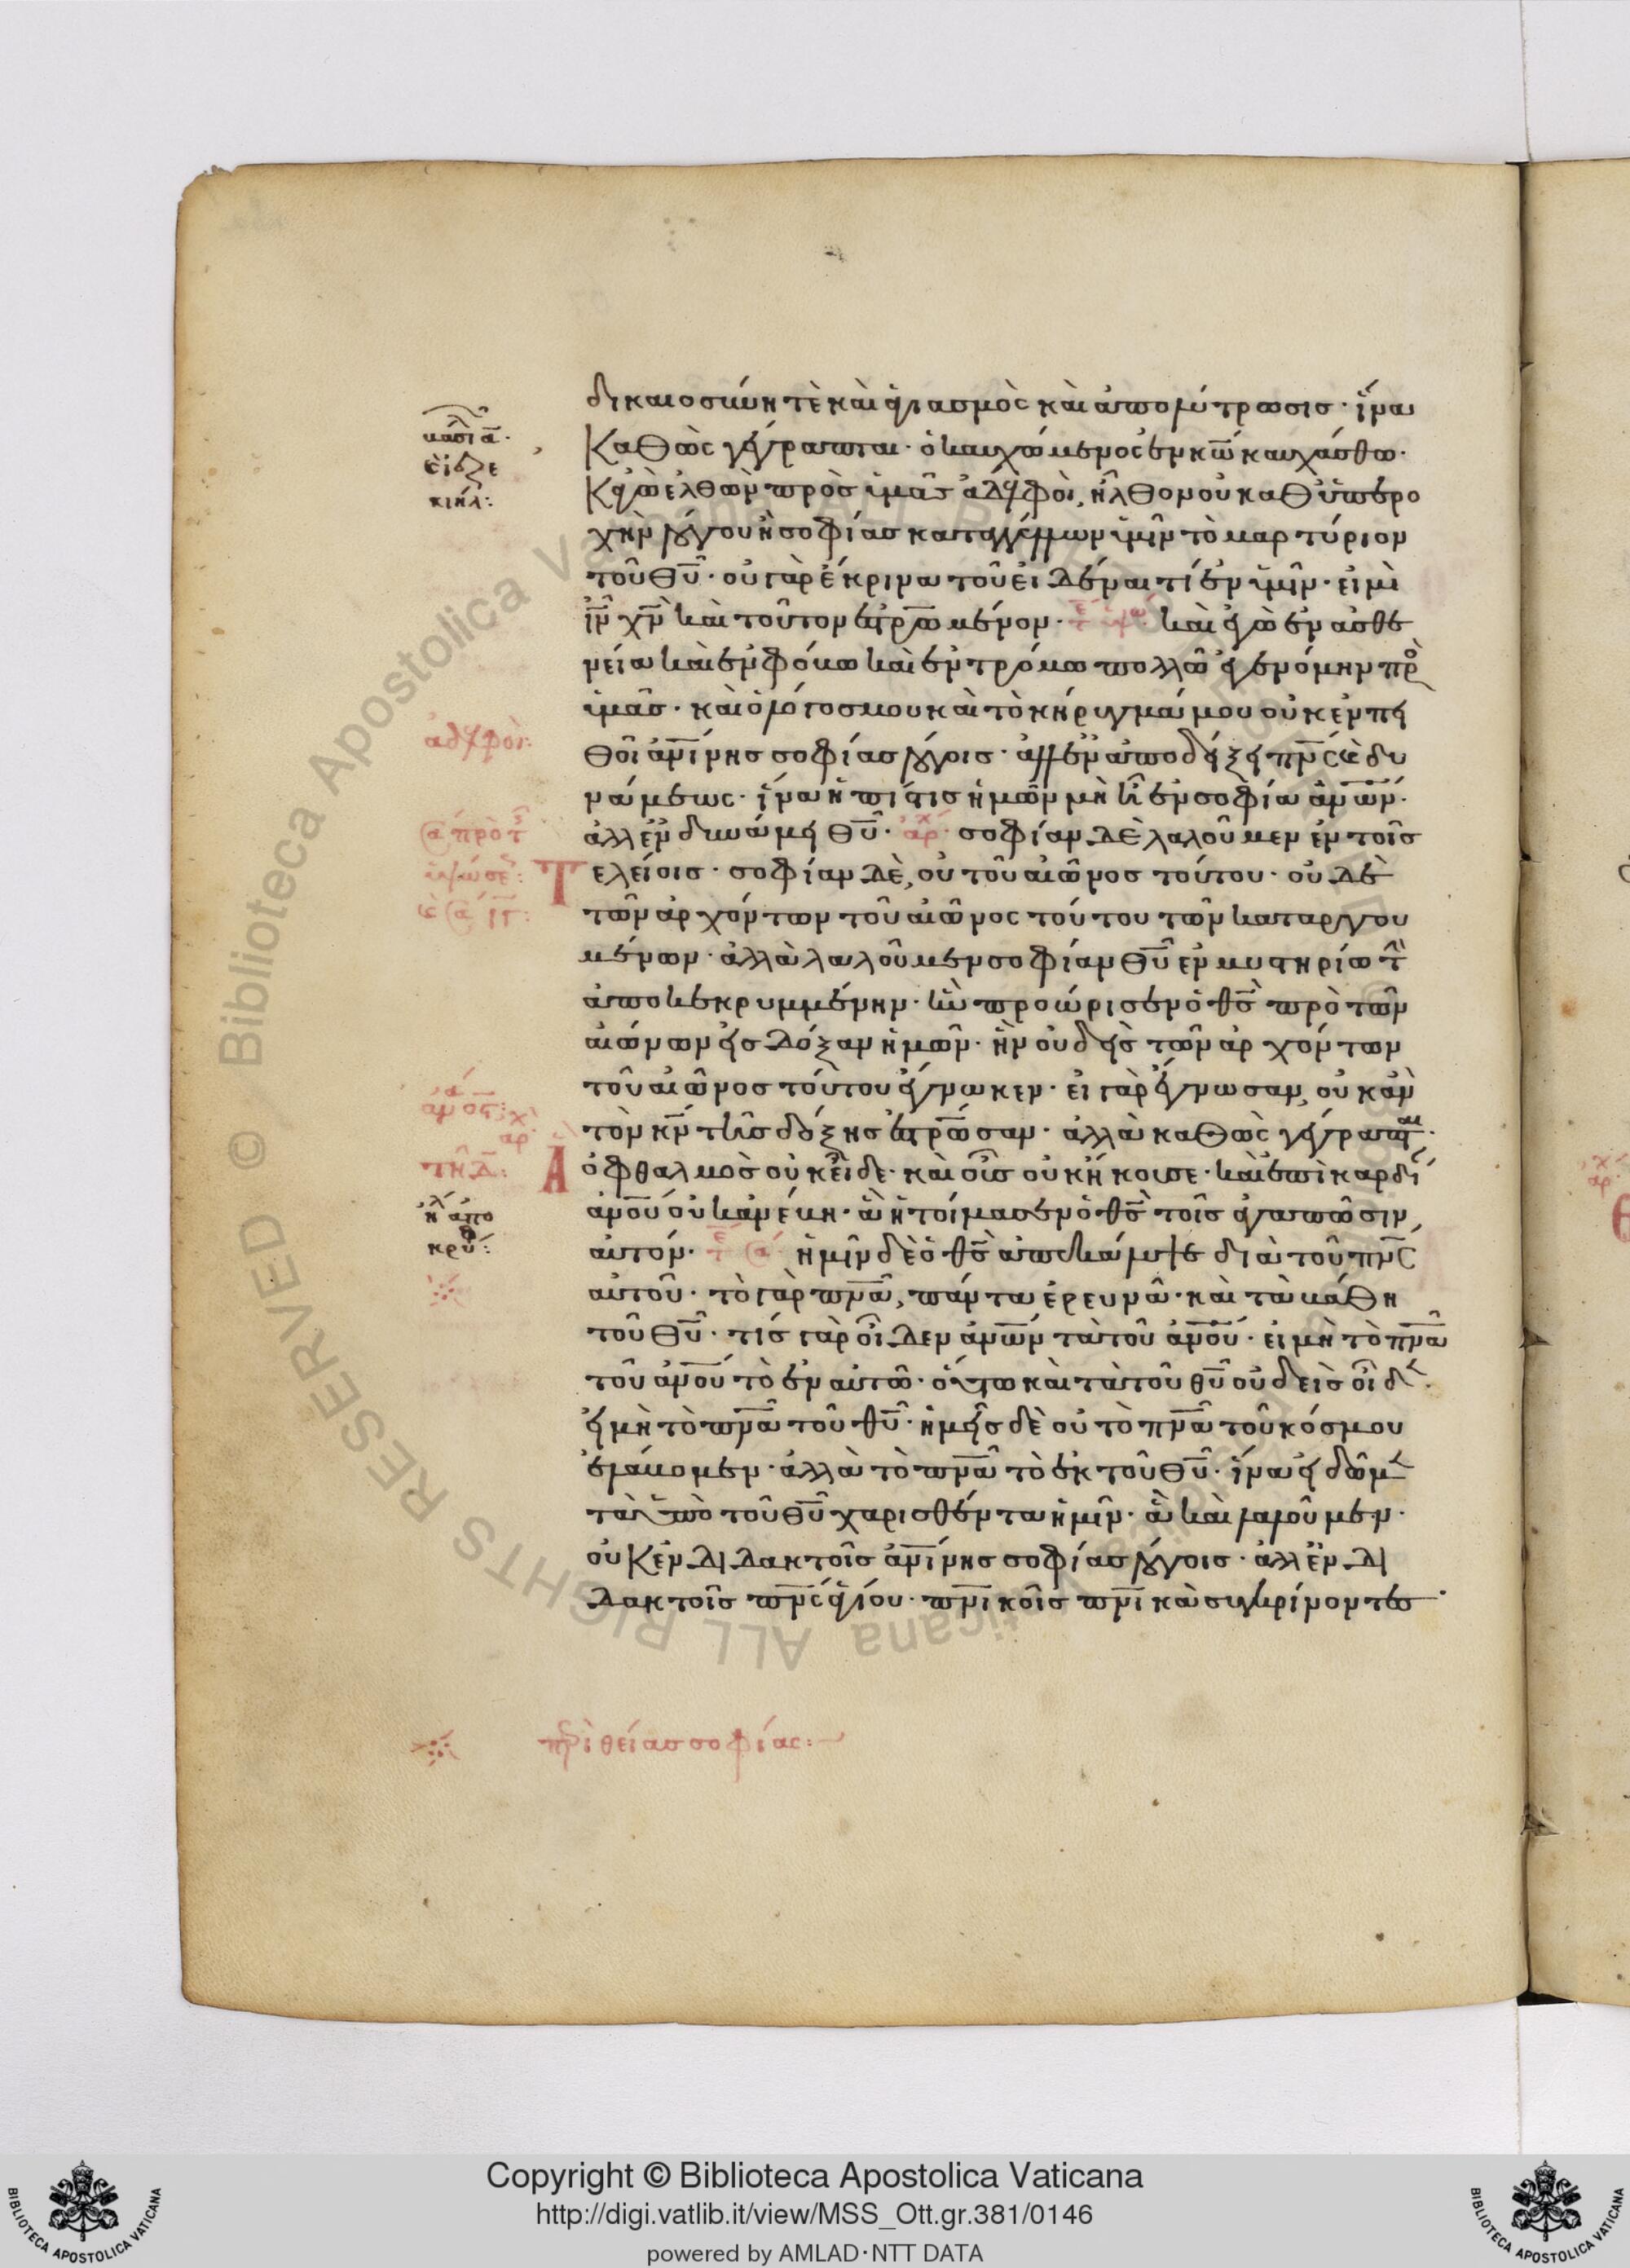 δικαιοσύνη τὲ καὶ ἁγιασμὸς καὶ ἀπολύτρωσις · ἵνα
Καθὼς γέγραπται · ὁ καυχώμενος ἐν κ̅ω̅ καυχάσθω ·
Κἀγὼ ἐλθὼν πρὸς ὑμᾶς ἀδελφοὶ, ἦλθον οὐ καθ ὑπερο
χὴν λόγου ἢ σοφίας καταγγέλλων ὑμῖν τὸ μαρτύριον
τοῦ θ̅υ̅ · οὐ γὰρ ἔκρινα τοῦ εἰδέναι τί ἐν ὑμῖν · εἰ μὶ
ι̅ν̅ χ̅ν̅ καὶ τοῦτον ἐσταυρωμένον · καὶ ἐγὼ ἐν ἀσθε
νεία καὶ ἐν φόβω καὶ ἐν τρόμω πολλῶ ἐγενόμην πρὸ
ὑμᾶς · καὶ ὁ λόγος μου καὶ τὸ κήρυγμά μου οὐκ ἐν πει
θοῖ ἀν̅ίνης σοφίας λόγοις · ἀλλ ἐν ἀποδείξει π̅ν̅ς̅ καὶ δυ
νάμεως · ἵνα ἡ πίστις ἡμῶν μὴ ἦ ἐν σοφία ἀ̅ν̅ω̅ν̅ ·
ἀλλ ἐν δυνάμει θ̅υ̅ · ἀρχ · σοφίαν δὲ λαλοῦμεν ἐν τοῖς
Τελείοις · σοφίαν δὲ, οὐ τοῦ αἰῶνος τούτου · οὐδὲ
τῶν ἀρχόντων τοῦ αἰῶνος τούτου τῶν καταργου
μένων · ἀλλὰ λαλοῦμεν σοφίαν θ̅υ̅ ἐν μυστηρίω τὴ
ἀποκεκρυμμένην · ἣν προώρισεν ὁ θ̅ς̅ πρὸ τῶν
αἰώνων εἰς δόξαν ἡμῶν · ἣν οὐδεὶς τῶν ἀρχόντων
τοῦ αἰῶνος τούτου ἔγνωκεν · εἰ γὰρ ἔγνωσαν, οὐκ ἂν
τὸν κ̅ν̅ τῆς δόξης ἐσταύρωσαν · ἀλλὰ καθὼς γέγραπται ·
Ἃ ὀφθαλμὸς οὐκ εἶδε · καὶ οὖς οὐκ ἤκουσε · καὶ ἐπὶ καρδί
ἀ̅ν̅ο̅υ̅ οὐκ ἀνέβη · ἃ ἡτοίμασεν ὁ θ̅ς̅ τοῖς ἀγαπῶσιν
αὐτόν · ἡμῖν δὲ ὁ θ̅ς̅ ἀπεκάλυψε διὰ τοῦ π̅ν̅ς̅
αὐτοῦ · τὸ γὰρ π̅ν̅α̅, πάντα ἐρευνᾶ · καὶ τὰ βάθη
τοῦ θ̅υ̅ · τίς γὰρ οἶδεν ἀ̅ν̅ω̅ν̅ τὰ τοῦ ἀ̅ν̅ο̅υ̅ · εἰ μὴ τὸ π̅ν̅α̅
τοῦ ἀ̅ν̅ο̅υ̅ τὸ ἐν αὐτῶ · οὕτω καὶ τὰ τοῦ θ̅υ̅ οὐδεὶς οἶδ ·
εἰ μὴ τὸ π̅ν̅α̅ τοῦ θ̅υ̅ · ἡμεῖς δὲ οὐ τὸ π̅ν̅α̅ τοῦ κόσμου
ἐλάβομεν · ἀλλὰ τὸ π̅ν̅α̅ τὸ ἐκ τοῦ θ̅υ̅ · ἵνα εἰδῶμεν
τὰ ὑπὸ τοῦ θ̅υ̅ χαρισθέντα ἡμῖν · ἃ καὶ λαλοῦμεν ·
οὐκ ἐν διδακτοῖς ἀν̅ίνης σοφίας λόγοις · ἀλλ ἐν δι
δακτοῖς π̅ν̅ς̅ ἁγίου · π̅ν̅ικοῖς π̅ν̅ικὰ συγκρίνοντες ·
ἀδελφοί:
ἢ ἀπο
κρύ:
περὶ θείας σοφίας:
© Biblioteca Apostolica Vaticana ALL RIGHTS RESERVED
Copyright © Biblioteca Apostolica Vaticana
http://digi.vatlib.it/view/MSS_Ott.gr.381/0146
powered by AMLAD·NTT DATA
BIBLIOTECA APOSTOLICA VATICANA
BIBLIOTECA APOSTOLICA VATICANA